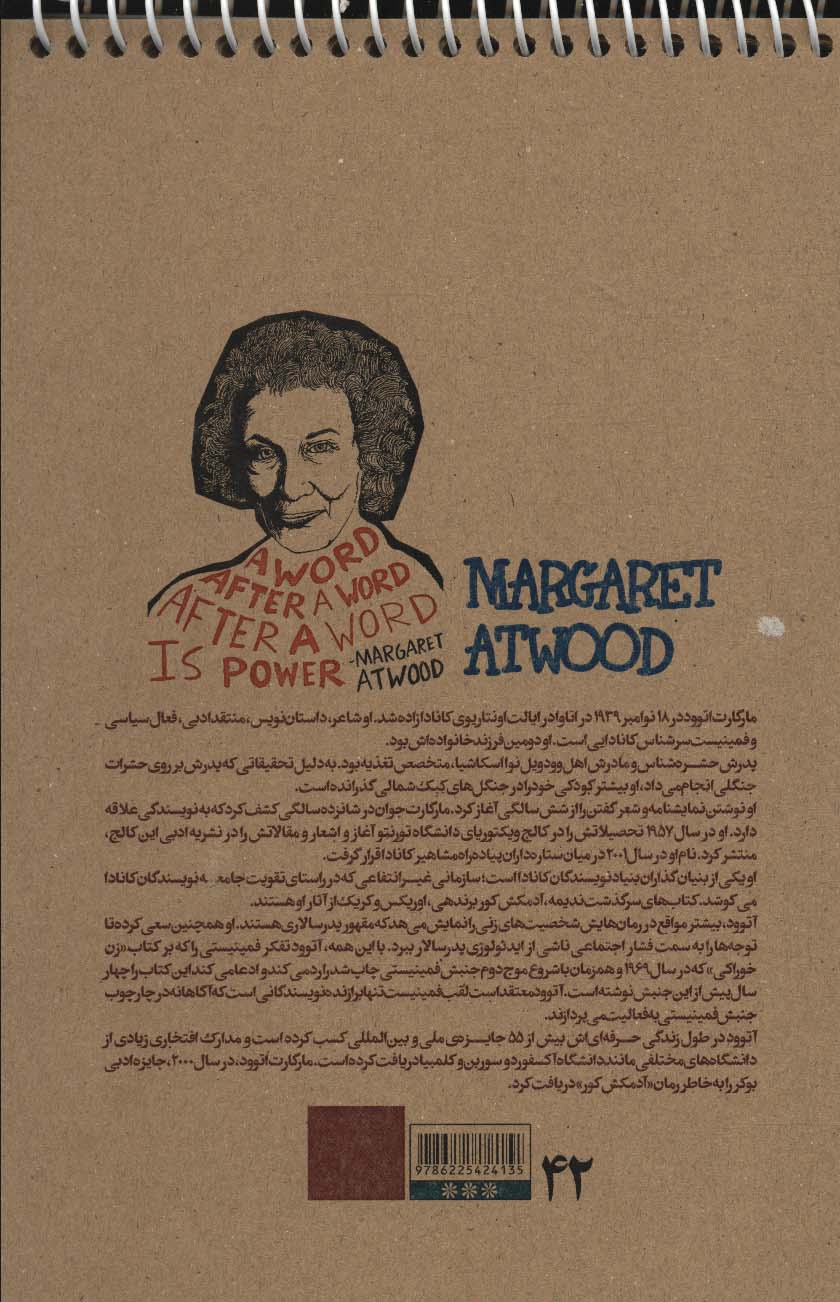 A WORD
AFTER A WORD
AFTER A WORD
IS POWER
-MARGARET
ATWOOD
MARGARET
ATWOOD
مارگارت اتوود در ۱۸ نوامبر ۱۹۳۹ در اتاوا در ایالت اونتاریوی کانادا زاده شد. او شاعر، داستان‌نویس، منتقد ادبی، فعال سیاسی
و فمینیست سرشناس کانادایی است. او دومین فرزند خانواده‌اش بود.
پدرش حشره‌شناس و مادرش اهل وودویل نوا اسکاشیا، متخصص تغذیه بود. به دلیل تحقیقاتی که پدرش بر روی حشرات
جنگلی انجام می‌داد، او بیشتر کودکی خود را در جنگل‌های کبک شمالی گذرانده است.
او نوشتن نمایشنامه و شعر گفتن را از شش سالگی آغاز کرد. مارگارت جوان در شانزده سالگی کشف کرد که به نویسندگی علاقه
دارد. او در سال ۱۹۵۷ تحصیلاتش را در کالج ویکتوریای دانشگاه تورنتو آغاز و اشعار و مقالاتش را در نشریه ادبی این کالج،
منتشر کرد. نام او در سال ۲۰۰۱ در میان ستاره‌داران پیاده‌راه مشاهیر کانادا قرار گرفت.
او یکی از بنیان گذاران بنیاد نویسندگان کانادا است؛ سازمانی غیرانتفاعی که در راستای تقویت جامعه نویسندگان کانادا
می‌کوشد. کتاب‌های سرگذشت ندیمه، آدمکش کور، برندهی، اوریکس و کریک از آثار او هستند.
آتوود، بیشتر مواقع در رمان‌هایش شخصیت‌های زنی را نمایش می‌دهد که مقهور پدرسالاری هستند. او همچنین سعی کرده تا
توجه‌ها را به سمت فشار اجتماعی ناشی از ایدئولوژی پدرسالار ببرد. با این همه، آتوود تفکر فمینیستی را که بر کتاب «زن
خوراکی» که در سال ۱۹۶۹ و همزمان با شروع موج دوم جنبش فمینیستی چاپ شد را رد می‌کند و ادعا می‌کند این کتاب را چهار
سال پیش از این جنبش نوشته است. آتوود معتقد است لقب فمینیست تنها برازنده نویسندگانی است که آگاهانه در چارچوب
جنبش فمینیستی به فعالیت می‌پردازند.
آتوود در طول زندگی حرفه‌ای‌اش بیش از ۵۵ جایزه‌ی ملی و بین‌المللی کسب کرده است و مدارک افتخاری زیادی از
دانشگاه‌های مختلفی مانند دانشگاه آکسفورد و سوربن و کلمبیا دریافت کرده است. مارگارت اتوود، در سال ۲۰۰۰، جایزه ادبی
بوکر را به خاطر رمان «آدمکش کور» دریافت کرد.
9786225424135
۴۲